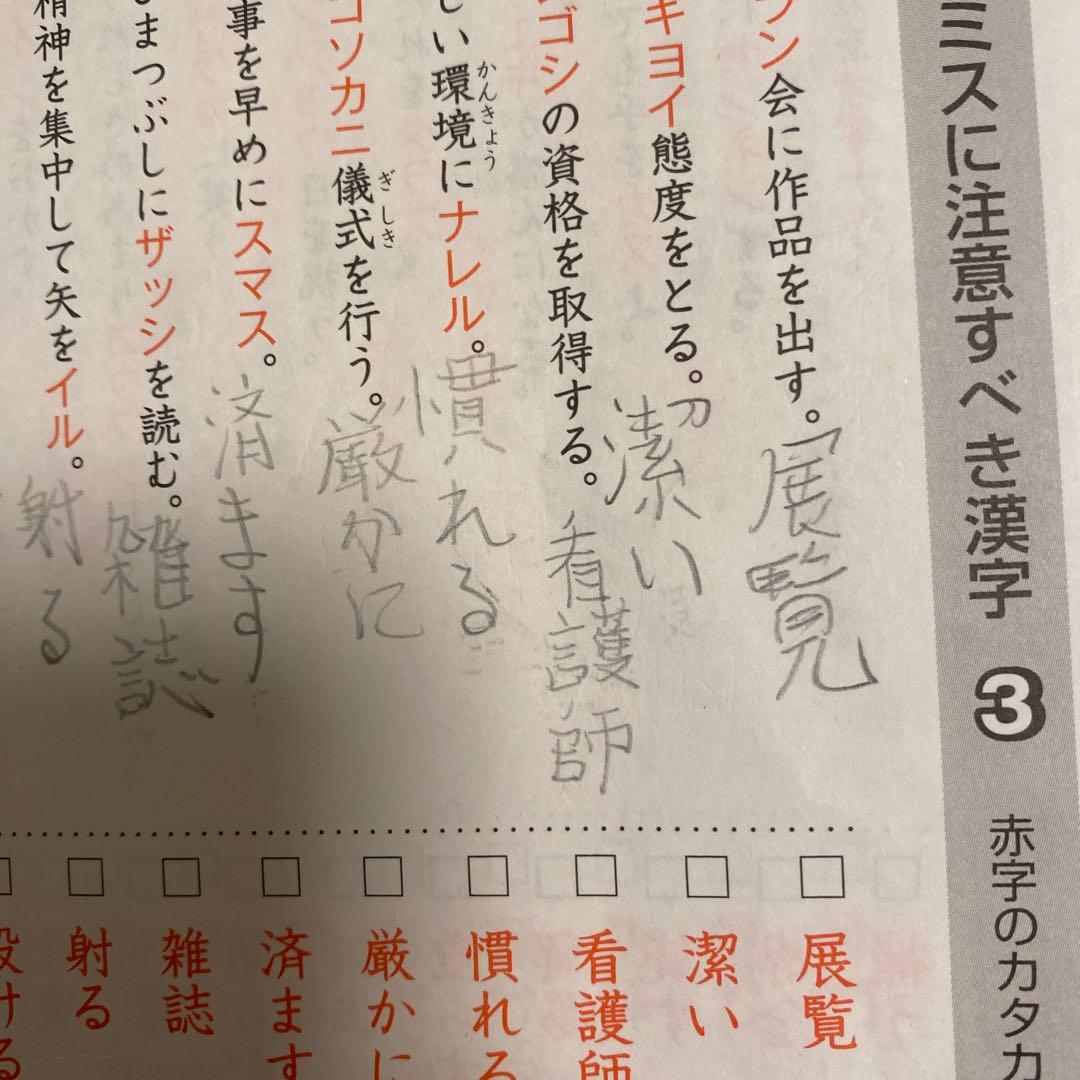 ミスに注意すべき漢字 3 赤字のカタカ
ラン会に作品を出す。
展覧
展覧
キヨイ態度をとる。
潔い
潔い
ゴシの資格を取得する。
看護師
看護師
しい環境にナレル。
かんきょう
慣れる
慣れる
ゴソカニ儀式を行う。
ぎしき
厳かに
厳かに
事を早めにスマス。
済ます
済ます
まつぶしにザッシを読む。
雑誌
雑誌
精神を集中して矢をイル。
射る
射る
設ける